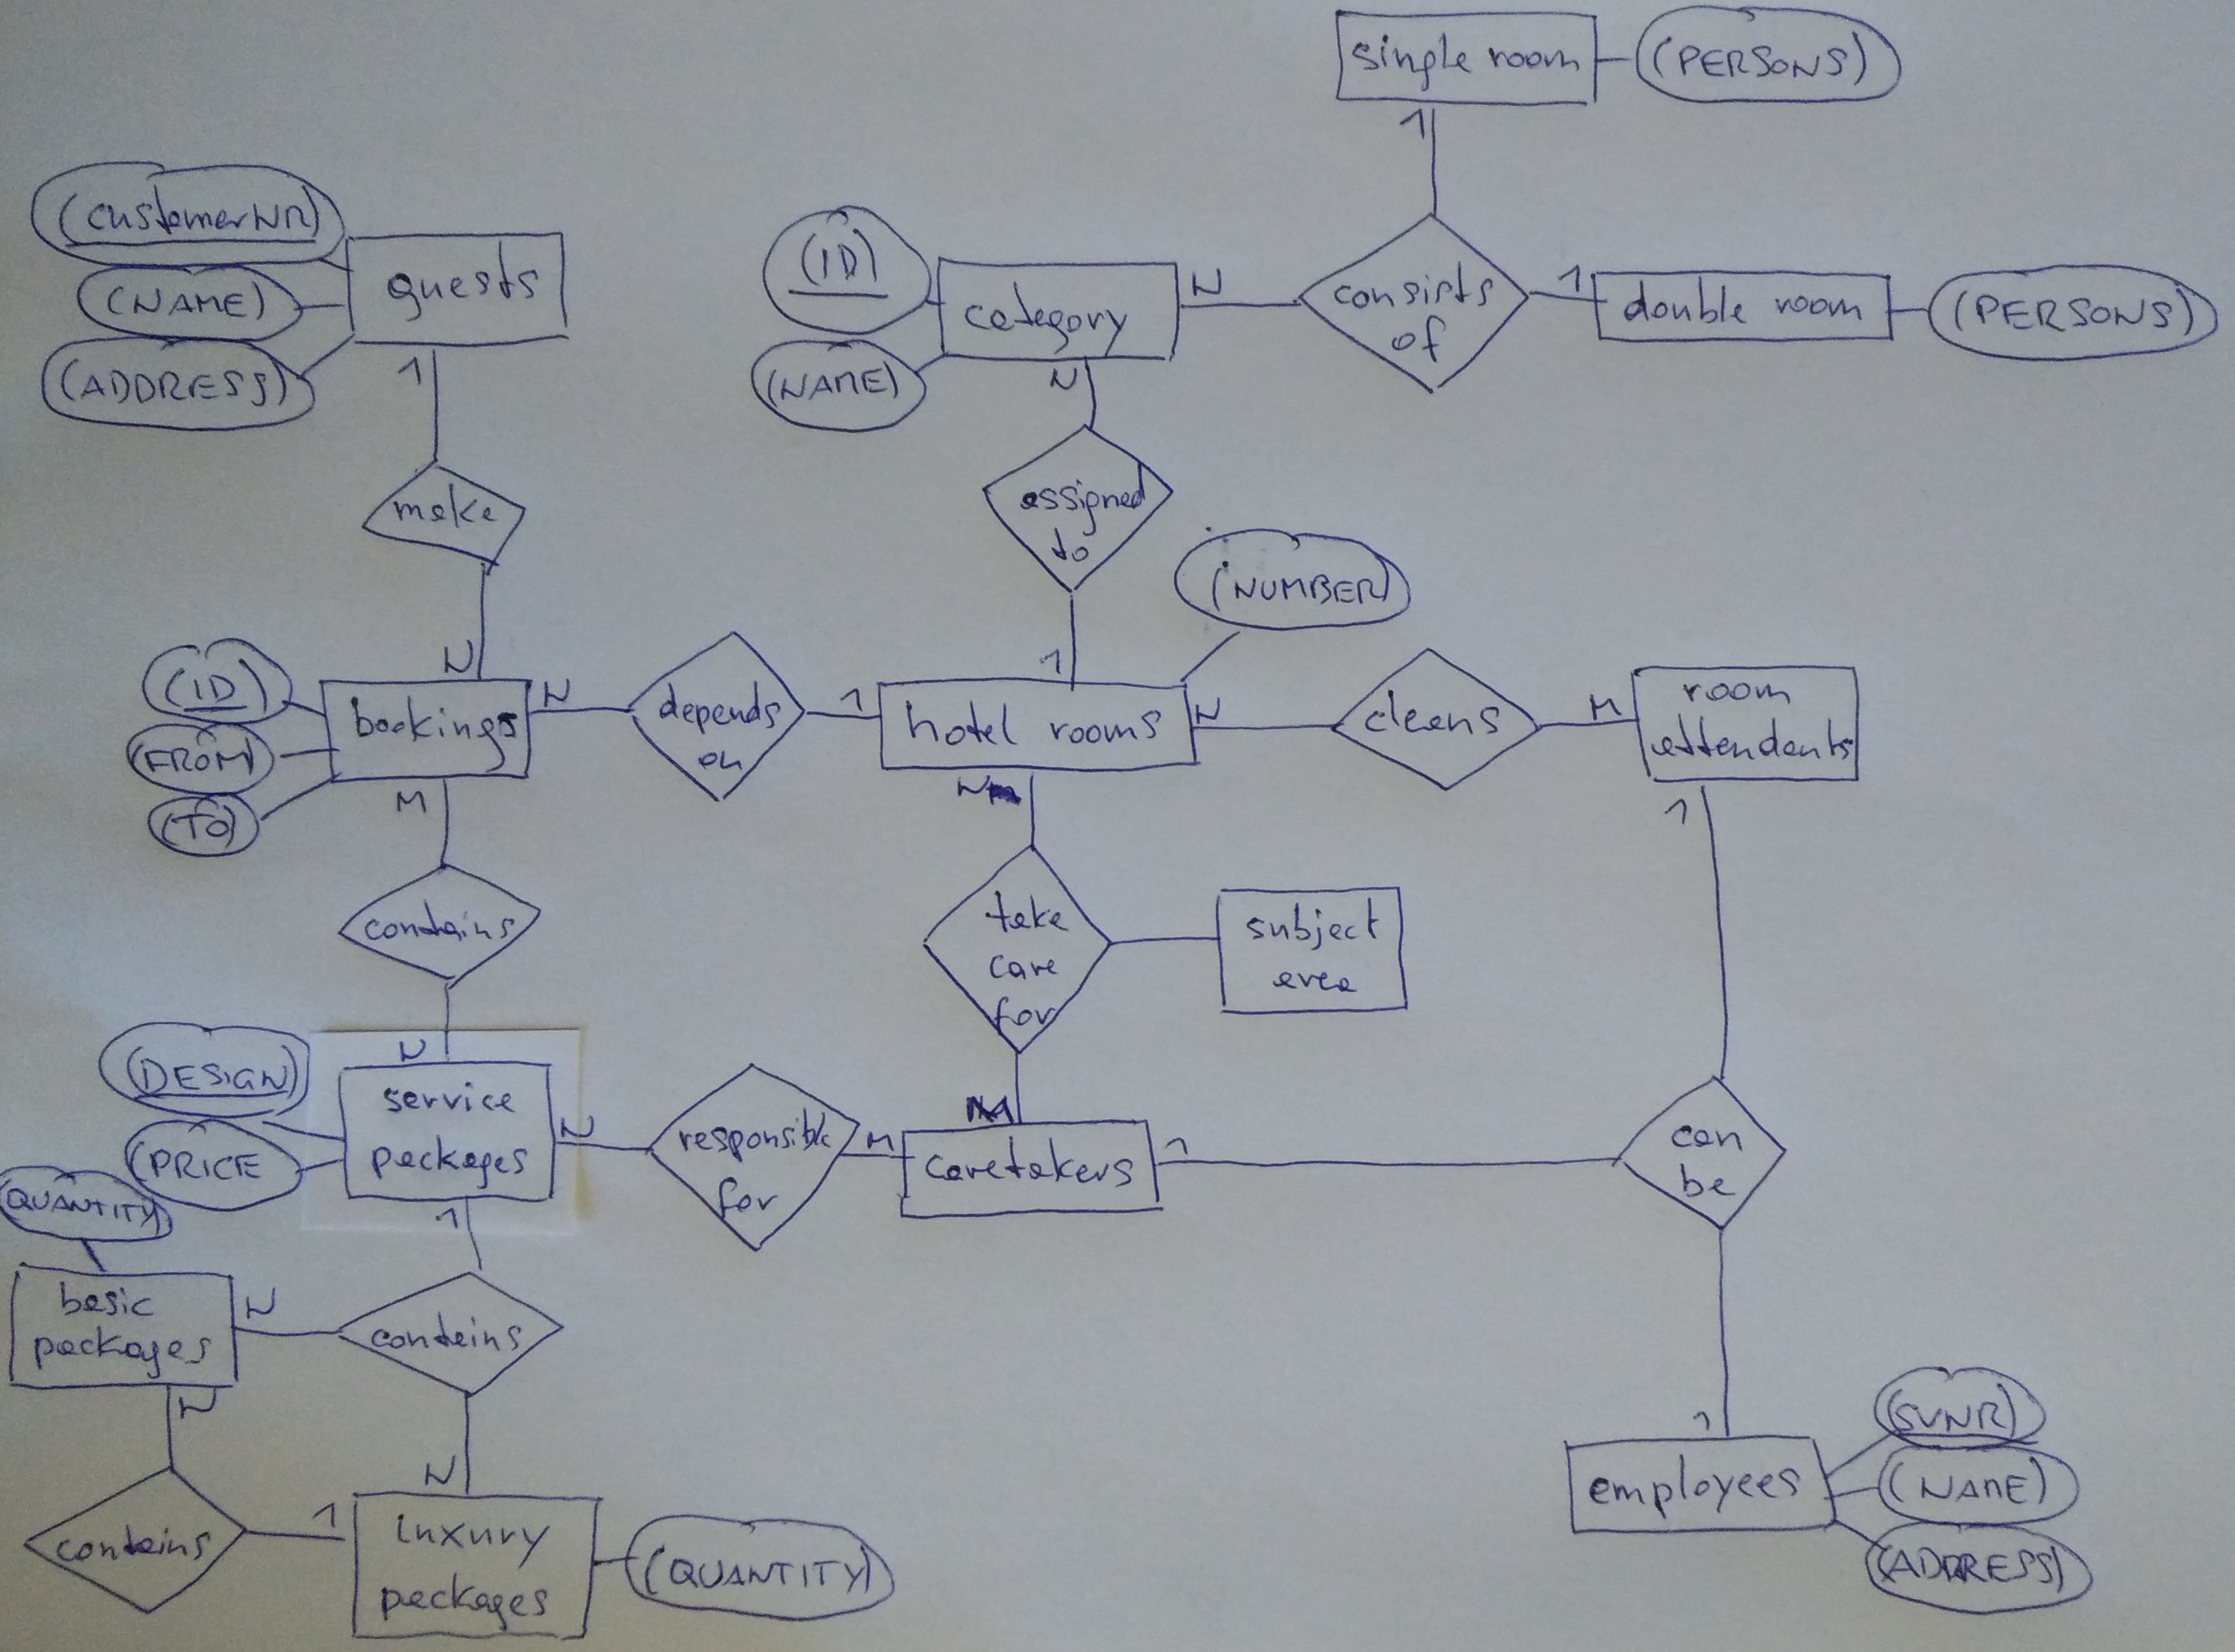 single room
(PERSONS)
1
(customerNR)
guests
(NAME)
(ADDRESS)
1
(ID)
category
(NAME)
N
consists
of
1
double room
(PERSONS)
N
make
assigned
to
(NUMBER)
N
1
(ID)
(FROM)
(TO)
bookings
N
depends
on
1
hotel rooms
N
cleans
M
room
attendants
M
N
1
contains
take
care
for
subject
area
N
M
(DESIGN)
(PRICE
service
packages
N
responsible
for
M
caretakers
1
can
be
QUANTITY
1
basic
packages
N
contains
N
N
1
(SVNR)
employees
(NAME)
(ADDRESS)
contains
1
luxury
packages
(QUANTITY)